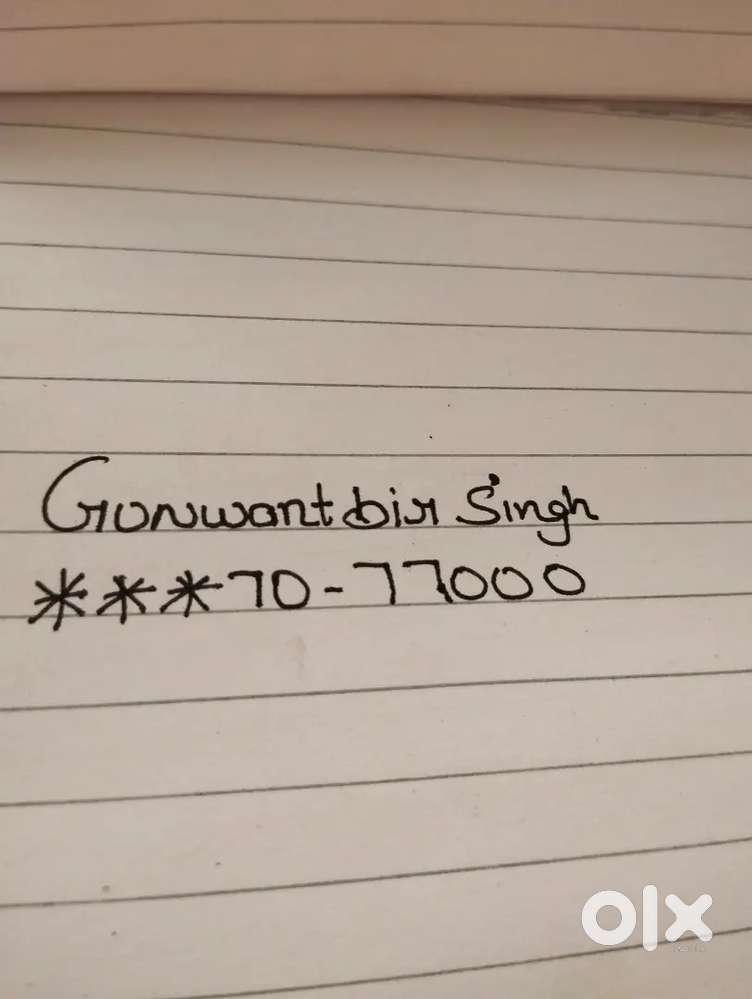 Gunwant bir Singh
***70-77000
olx